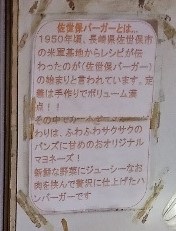 佐世保バーガーとは…
1950年頃、長崎県佐世保市
の米軍基地からレシピが伝
わったのが(佐世保バーガー)
の始まりと言われています。定
義は手作りでボリューム満
点!!
わりは、ふわふわサクサクの
バンズに甘めのおオリジナル
マヨネーズ!
新鮮な野菜にジューシーなお
肉を挟んで贅沢に仕上げたハ
ンバーガーです